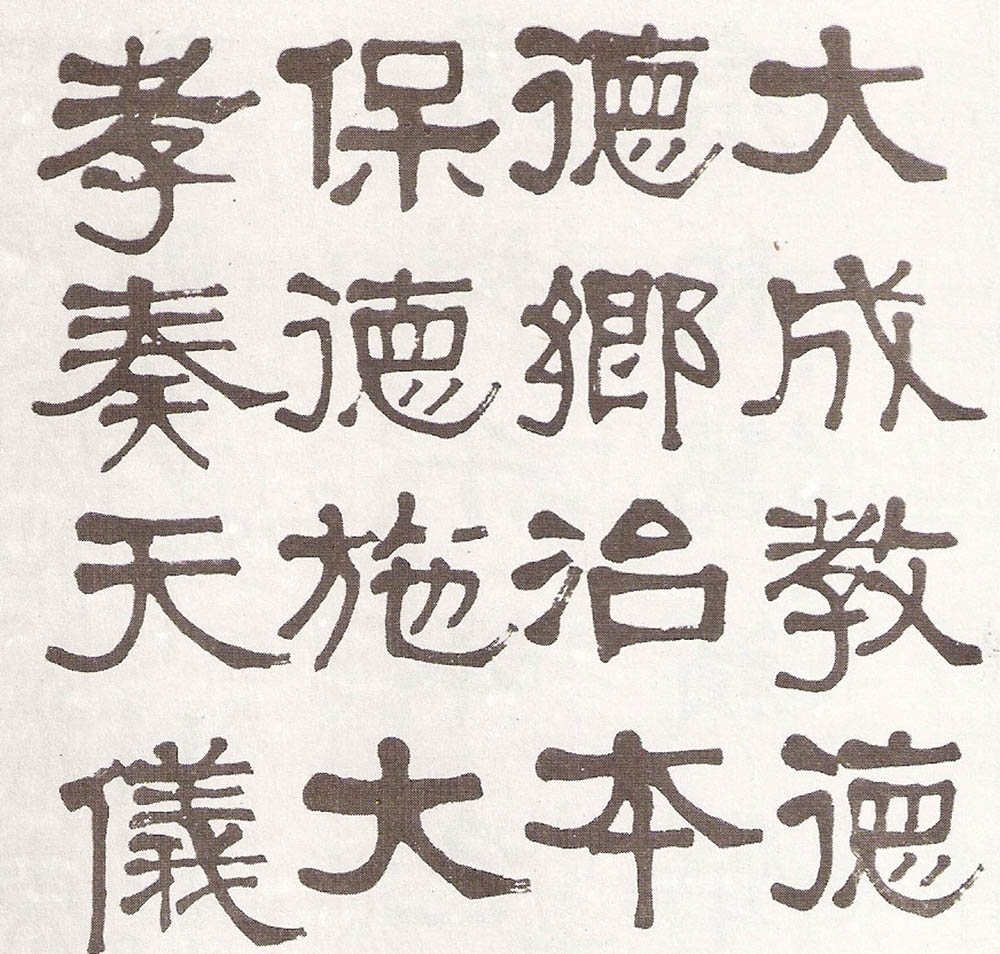 大成教德
德鄉治本
保德施大
孝奏天儀